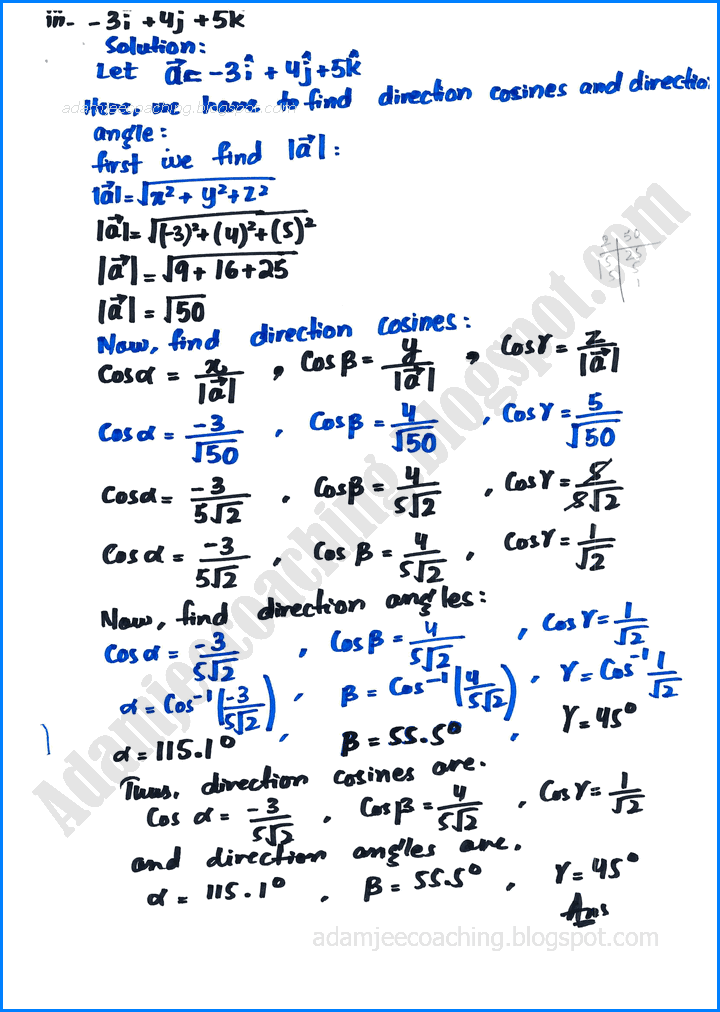 iii- -3i + 4j + 5k
Solution:
Let a⃗ = -3î + 4ĵ + 5k̂
to find direction cosines and directio
adamjeecoaching.blogspot.com
angle:
first we find |a⃗|:
|a⃗| = √x² + y² + z²
|a⃗| = √(-3)² + (4)² + (5)²
|a⃗| = √9 + 16 + 25
|a⃗| = √50
Now, find direction cosines:
Cosα = x/|a⃗| , Cosβ = y/|a⃗| , Cosγ = z/|a⃗|
Cosα = -3/√50 , Cosβ = 4/√50 , Cosγ = 5/√50
Cosα = -3/5√2 , Cosβ = 4/5√2 , Cosγ = 5/5√2
Cosα = -3/5√2 , Cosβ = 4/5√2 , Cosγ = 1/√2
Now, find direction angles:
Cosα = -3/5√2 , Cosβ = 4/5√2 , Cosγ = 1/√2
α = Cos⁻¹(-3/5√2) , β = Cos⁻¹(4/5√2) , γ = Cos⁻¹ 1/√2
α = 115.1° , β = 55.5° , γ = 45°
Thus, direction cosines are.
Cos α = -3/5√2 , Cosβ = 4/5√2 , Cosγ = 1/√2
and direction angles are.
α = 115.1° , β = 55.5° , γ = 45°
Ans
adamjeecoaching.blogspot.com
Adamjeecoaching.blogspot.com